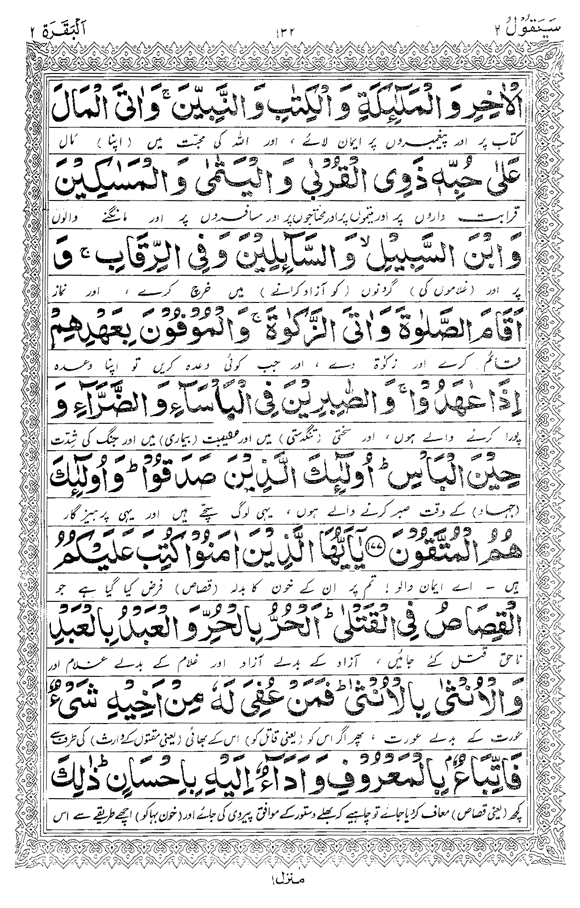 سَيَقُولُ ٢ ١٣٢ اَلْبَقَرَة ٢
الْاٰخِرِ وَالْمَلٰٓئِكَةِ وَالْكِتٰبِ وَالنَّبِيّٖنَ ۚ وَاٰتَى الْمَالَ
کتاب پر اور پیغمبروں پر ایمان لائے ، اور اللہ کی محبّت میں (اپنا) مال
عَلٰى حُبِّهٖ ذَوِى الْقُرْبٰى وَالْيَتٰمٰى وَالْمَسٰكِيْنَ
قرابت داروں پر اور یتیموں پر اور محتاجوں پر اور مسافروں پر اور مانگنے والوں
وَابْنَ السَّبِيْلِ ۙ وَالسَّآئِلِيْنَ وَفِى الرِّقَابِ ۚ وَ
پر اور (غلاموں کی) گردنوں (کو آزاد کرانے) میں خرچ کرے ، اور نماز
اَقَامَ الصَّلٰوةَ وَاٰتَى الزَّكٰوةَ ۚ وَالْمُوْفُوْنَ بِعَهْدِهِمْ
قائم کرے اور زکوٰۃ دے ، اور جب کوئی وعدہ کریں تو اپنا وعدہ
اِذَا عٰهَدُوْا ۚ وَالصّٰبِرِيْنَ فِى الْبَاْسَآءِ وَالضَّرَّآءِ وَ
پورا کرنے والے ہوں ، اور سختی (تنگدستی) میں اور مصیبت (بیماری) میں اور جنگ کی شِدّت
حِيْنَ الْبَاْسِ ؕ اُولٰٓئِكَ الَّذِيْنَ صَدَقُوْا ؕ وَاُولٰٓئِكَ
(جہاد) کے وقت صبر کرنے والے ہوں ، یہی لوگ سچّے ہیں اور یہی پرہیزگار
هُمُ الْمُتَّقُوْنَ ﴿١٧٧﴾ يٰٓاَيُّهَا الَّذِيْنَ اٰمَنُوْا كُتِبَ عَلَيْكُمُ
ہیں ۔ اے ایمان والو ! تم پر ان کے خون کا بدلہ (قصاص) فرض کیا گیا ہے جو
الْقِصَاصُ فِى الْقَتْلٰى ؕ اَلْحُرُّ بِالْحُرِّ وَالْعَبْدُ بِالْعَبْدِ
ناحق قتل کئے جائیں ، آزاد کے بدلے آزاد اور غلام کے بدلے غلام اور
وَالْاُنْثٰى بِالْاُنْثٰى ؕ فَمَنْ عُفِىَ لَهٗ مِنْ اَخِيْهِ شَىْءٌ
عورت کے بدلے عورت ، پھر اگر اس کو (یعنی قاتل کو) اس کے بھائی (یعنی مقتول کے وارث) کی طرف سے
فَاتِّبَاعٌۢ بِالْمَعْرُوْفِ وَاَدَآءٌ اِلَيْهِ بِاِحْسَانٍ ؕ ذٰلِكَ
کچھ (یعنی قصاص) معاف کر دیا جائے تو چاہیے کہ بھلے دستور کے موافق پیروی کی جائے اور (خون بہا کو) اچھے طریقے سے اس
منزل ١